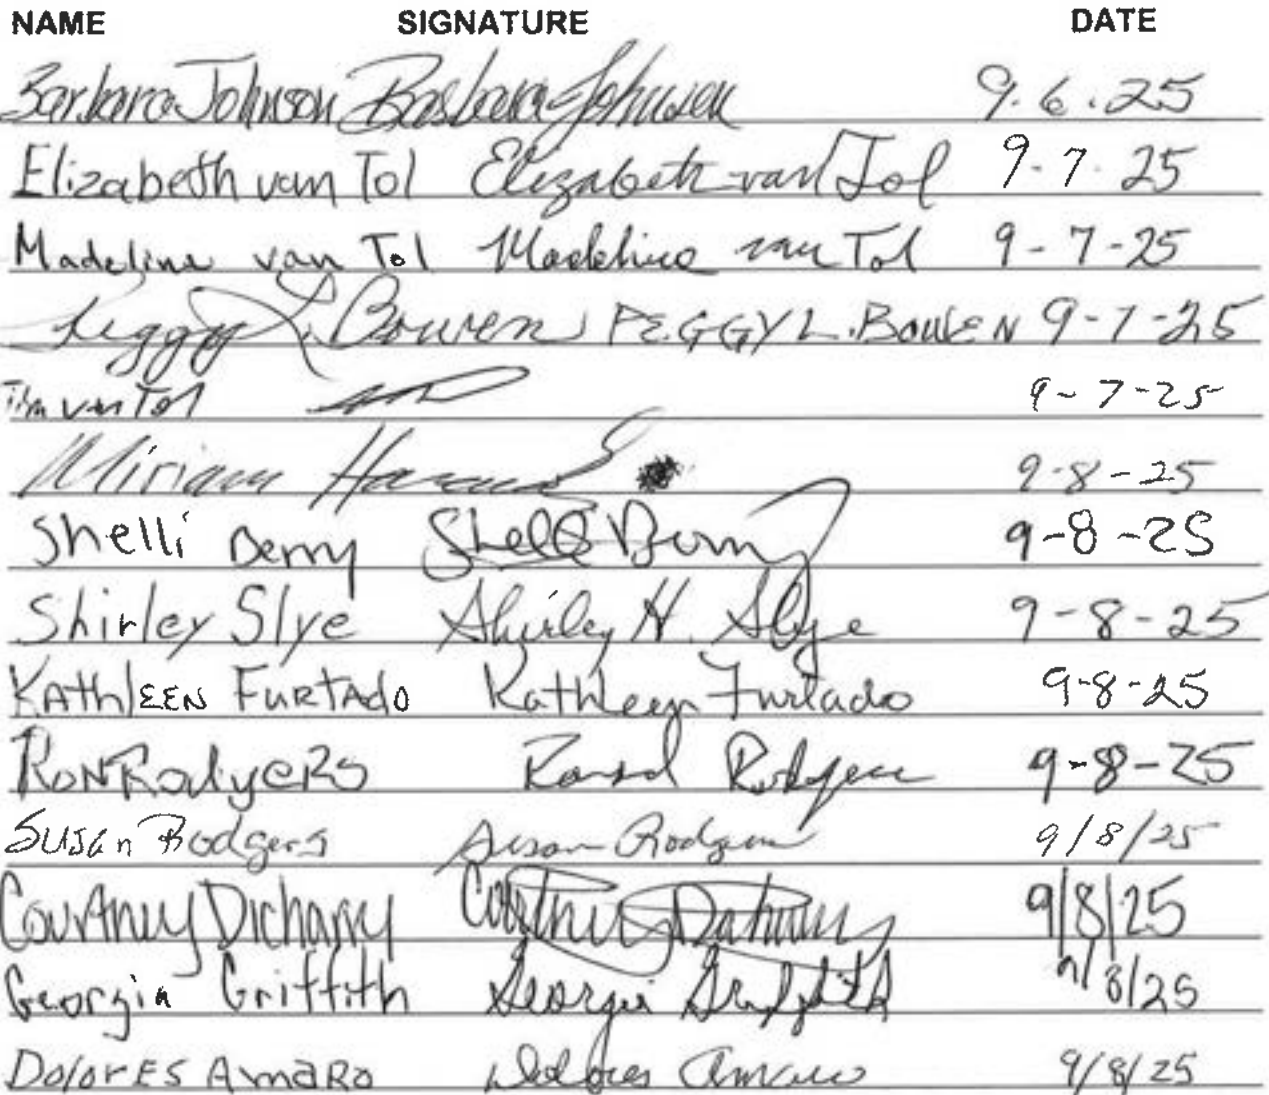 NAME SIGNATURE DATE
Barbara Johnson Barbara Johnson 9.6.25
Elizabeth van Tol Elizabeth van Tol 9-7-25
Madeline van Tol Madeline van Tol 9-7-25
Peggy L. Bowen PEGGY L. BOWEN 9-7-25
Tim van Tol 9-7-25
Miriam 9-8-25
Shelli Berry Shelli Berry 9-8-25
Shirley Slye Shirley H. Slye 9-8-25
KAthlEEN FURTADO Kathleen Furtado 9-8-25
RON RodgeRS Ronald Rodgers 9-8-25
Susan Rodgers Susan Rodgers 9/8/25
Courtney Dicharry Courtney Dicharry 9/8/25
Georgia Griffith Georgia Griffith 9/8/25
DolorES AmaRo Dolores Amaro 9/8/25